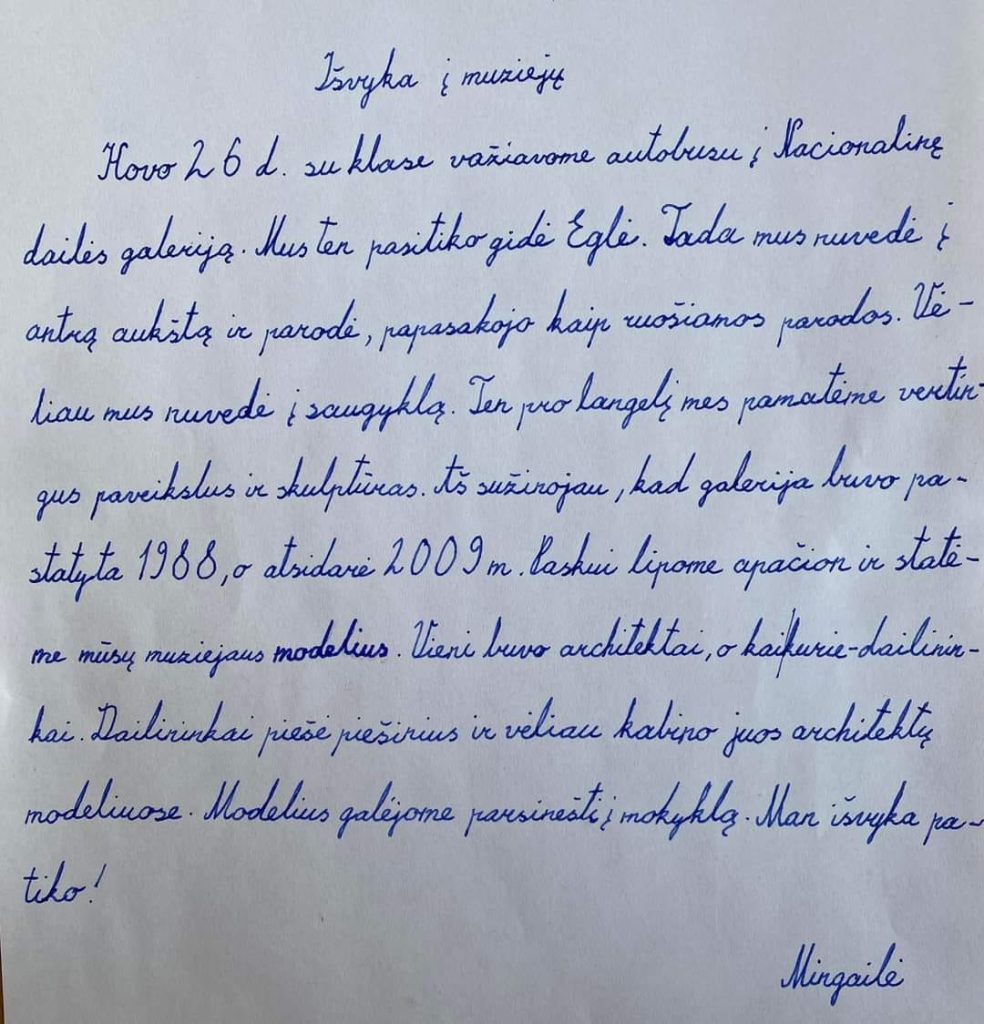 Išvyka į muziejų
Kovo 26 d. su klase važiavome autobusu į Nacionalinę
dailės galeriją. Mus ten pasitiko gidė Eglė. Tada mus nuvedė į
antrą aukštą ir parodė, papasakojo kaip ruošiamos parodos. Vė-
liau mus nuvedė į saugyklą. Ten pro langelį mes pamatėme vertin-
gus paveikslus ir skulptūras. Aš sužinojau, kad galerija buvo pa-
statyta 1988, o atsidarė 2009 m. Paskui lipome apačion ir statė-
me mūsų muziejaus modelius. Vieni buvo architektai, o kai|kurie-dailinin-
kai. Dailininkai piešė piešinius ir vėliau kabino juos architektų
modeliuose. Modelius galėjome parsinešti į mokyklą. Man išvyka pa-
tiko!
Mingailė